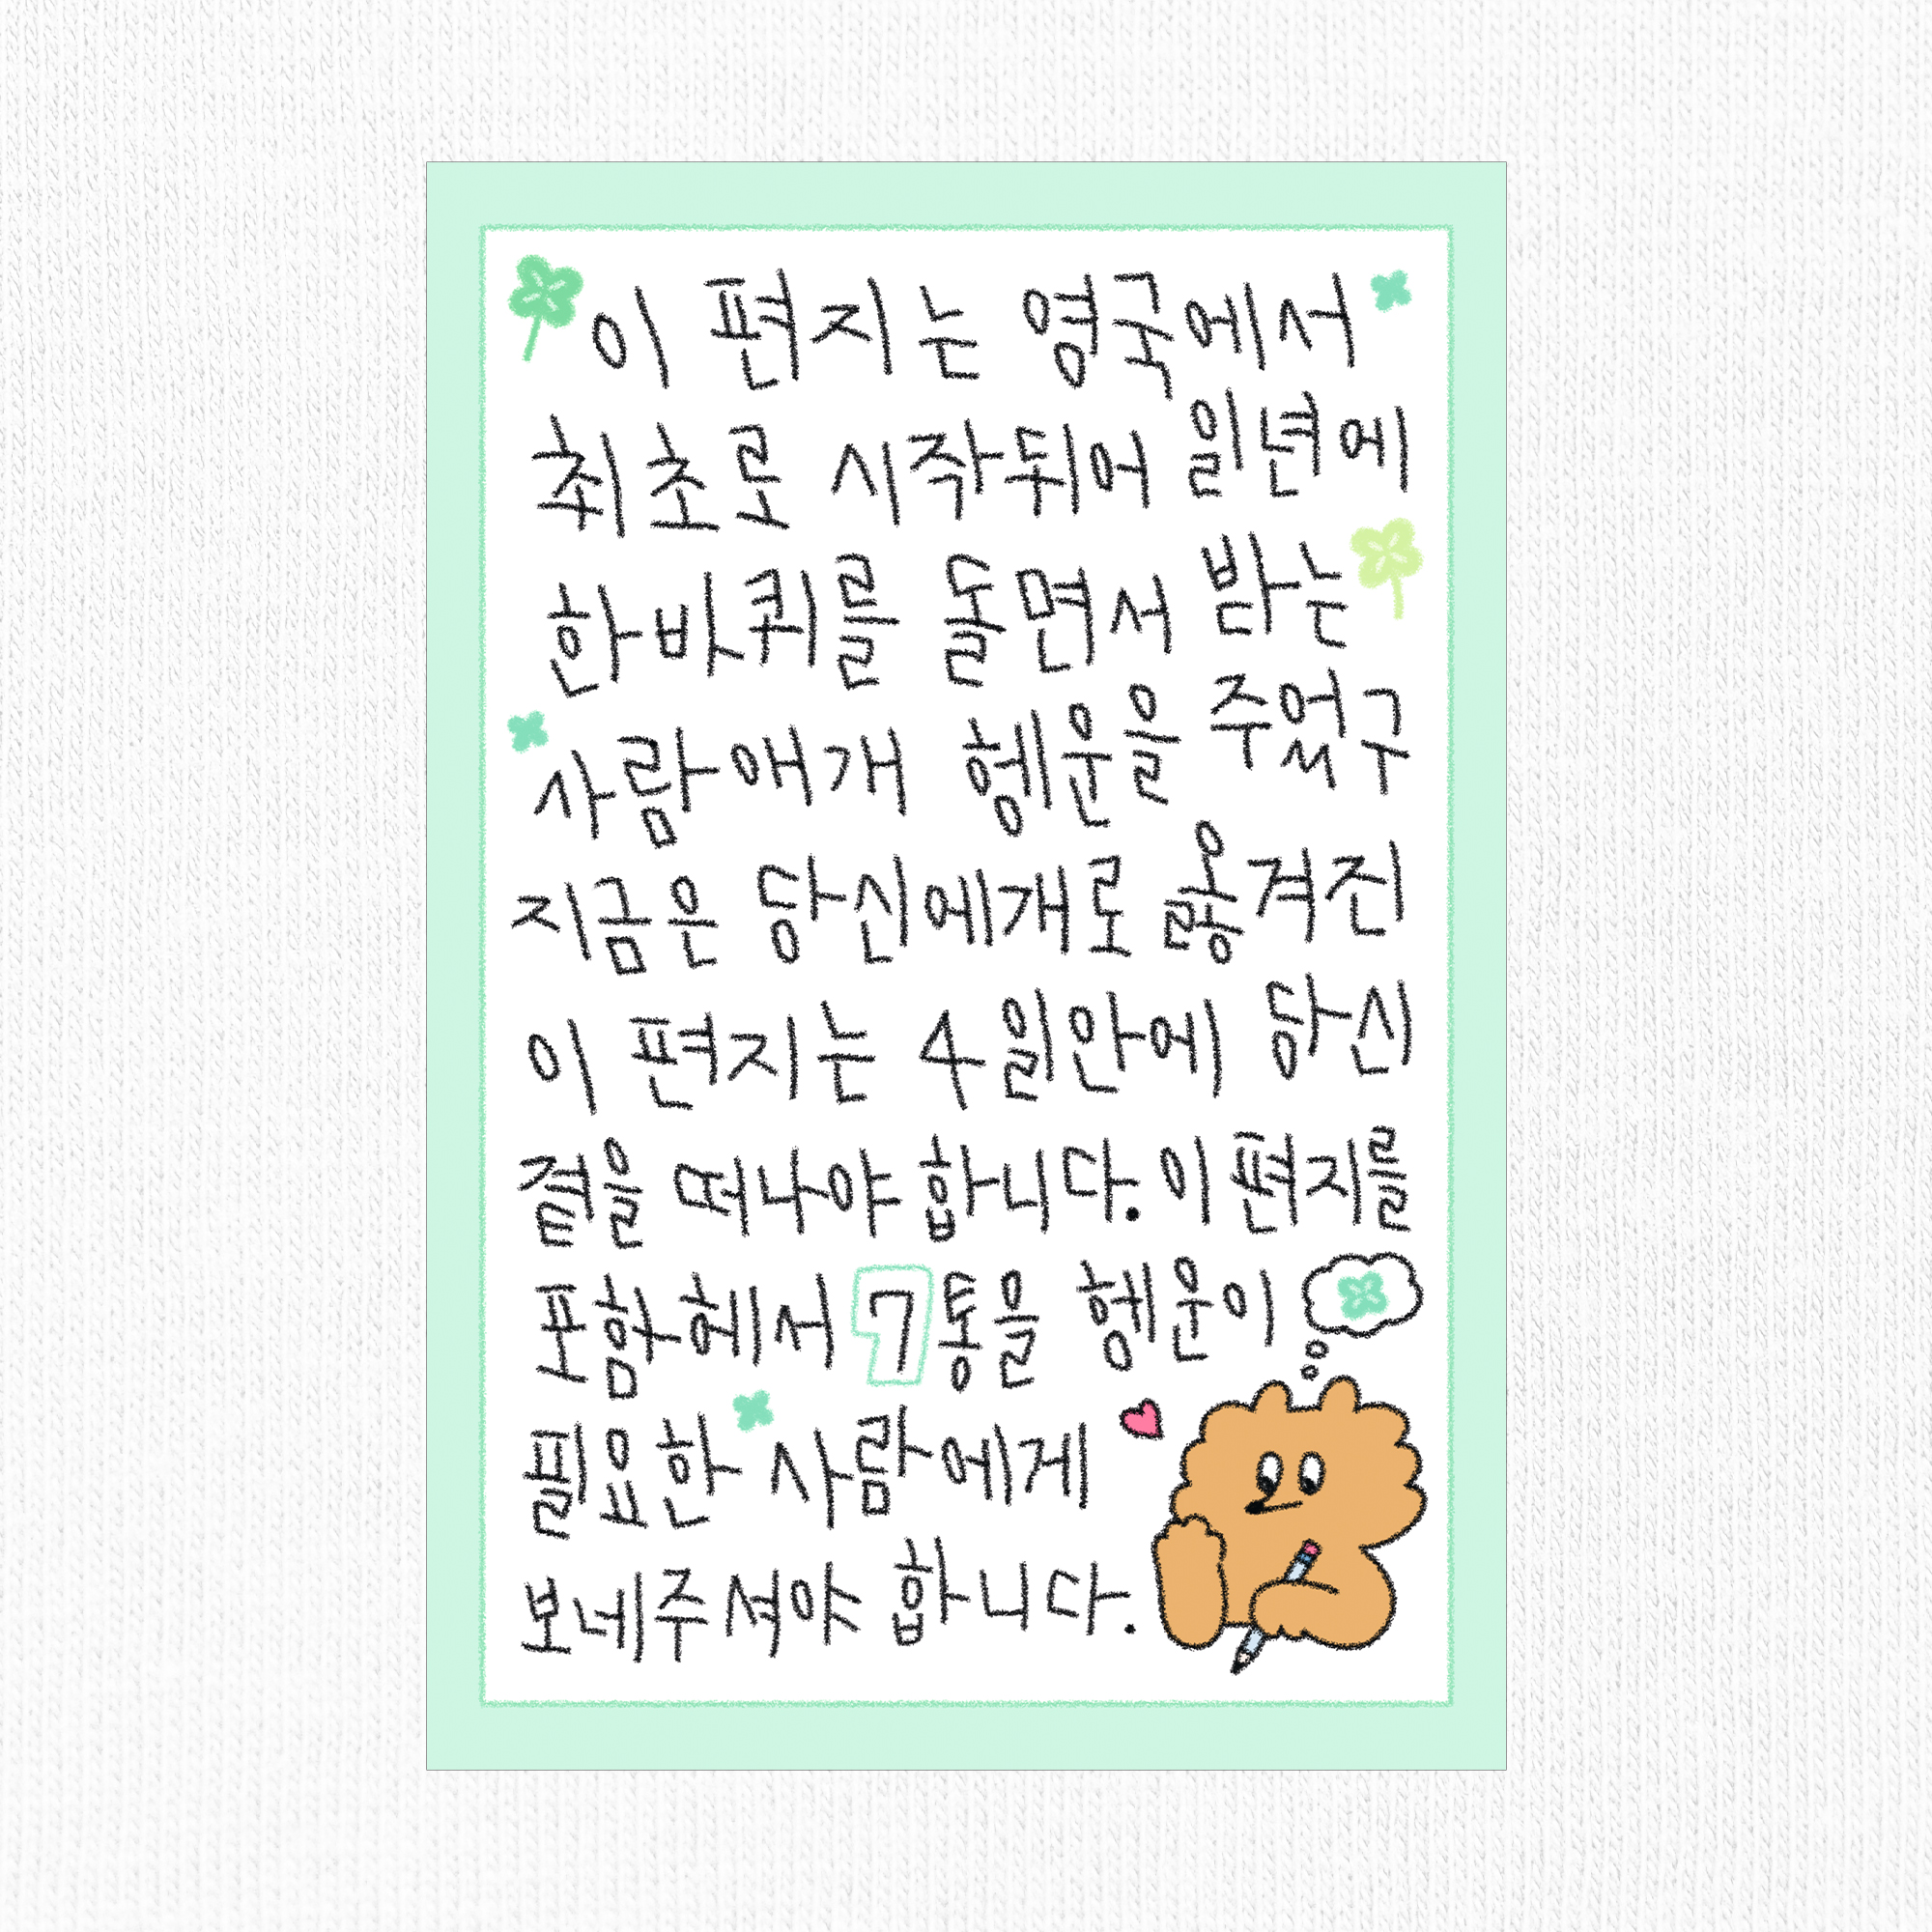 이 편지는 영국에서
취초로 시작뒤어 일년에
한바퀴를 돌면서 밤는
사람애개 헹운을 주었구
지금은 당신에개로 옮겨진
이 편지는 4일안에 당신
곁을 떠나야 합니다. 이 편지를
포함헤서 7통을 헹운이
필요한 사람에게
보네주셔야 합니다.